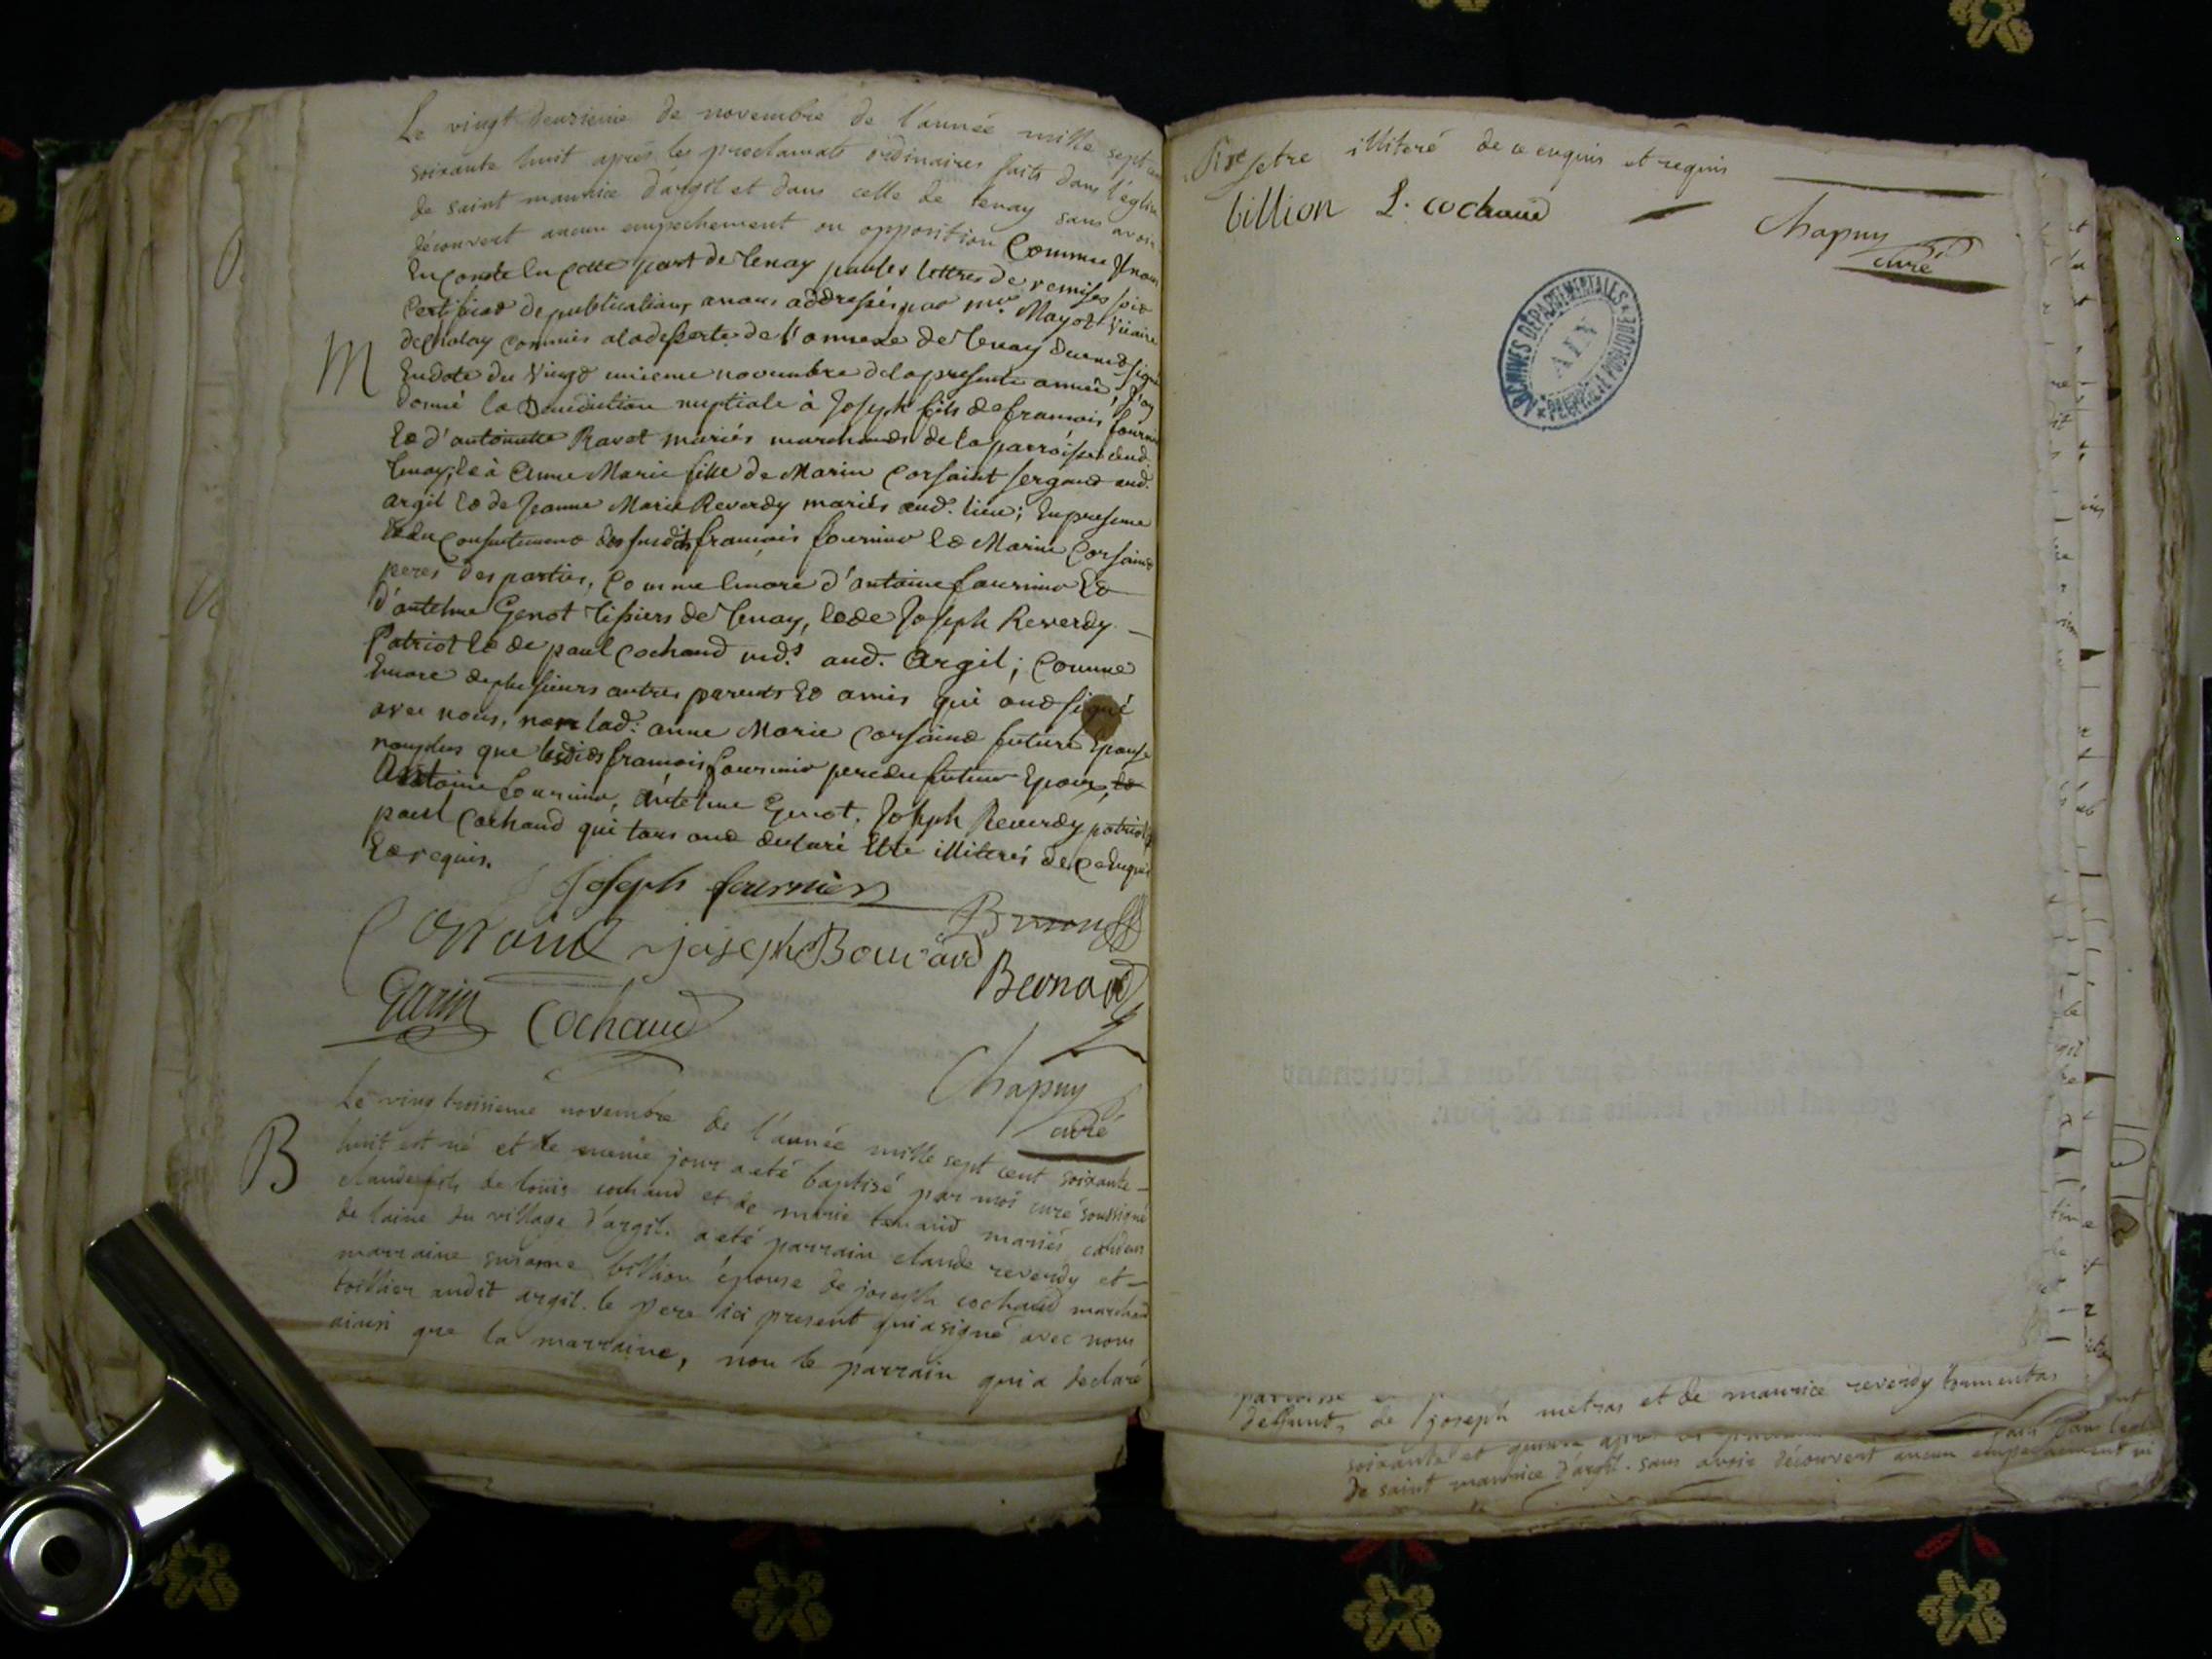 Le vingt deuxieme de novembre de l'année mille sept cent
soixante huit aprés les proclamats ordinaires faits dans l'église
de saint maurice d'argil et dans celle de tenay sans avoir
découvert aucun empechement ou opposition Comme Il nous
En conste En cette part de tenay par les lettres de remises soit
Certificat de publications a nous addressés par mre. Mayot Vicaire
de Chaley Commis a la desserte de l'annexe de tenay
En date du Vingt unieme novembre de la presente année, J'ay
donné la Benediction nuptiale à Joseph fils de francois fournier
Et d'antoinette Ravet mariés marchands de la parroisse dud.
tenay, Et à Anne Marie fille de Marin Corsaint sergent aud.
argil Et de Jeanne Marie Reverdy mariés aud. lieu; En presence
Et du Consentement des susdits francois fournier Et Marin Corsaint
peres des parties, Comme Encore d'antoine fournier Et
d'antelme Genot tissiers de tenay, Et de Joseph Reverdy
Patriot Et de paul Cochand md.s aud. Argil; Comme
Encore de plusieurs autres parents Et amis qui ont signé
avec nous, non lad. anne Marie Corsaint future Epouse
non plus que lesdits francois fournier pere du futur Epoux, Et
Antoine fournier, Antelme Genot, Joseph Reverdy patriot Et
paul Cochand qui tous ont declaré Etre illiterés de ce Enquis
Et requis.
Joseph fournier
Corsaint joseph Bouvard
Bernard
Garin Cochaud
Chapuy
curé
M
B
Le vingt troisieme novembre de l'année mille sept cent soixante-
huit est né et le meme jour a eté baptisé par moi curé soussigné
claude fils de loüis cochaud et de marie tenand mariés cardeur
de laine du village d'argil. a eté parrain claude reverdy et-
marraine susanne billion épouse de joseph cochaud marchand
toillier audit argil. le pere ici present qui a signé avec nous
ainsi que la marraine, non le parrain qui a declaré
etre illiteré de ce enquis et requis
billion L. cochaud
Chapuy
curé
ARCHIVES DÉPARTEMENTALES
AIN
RÉPUBLIQUE
defunts, de joseph metras et de maurice reverdy tormentas
soixante et quinze apres
de saint maurice d'argil. sans avoir découvert aucun empechement ni